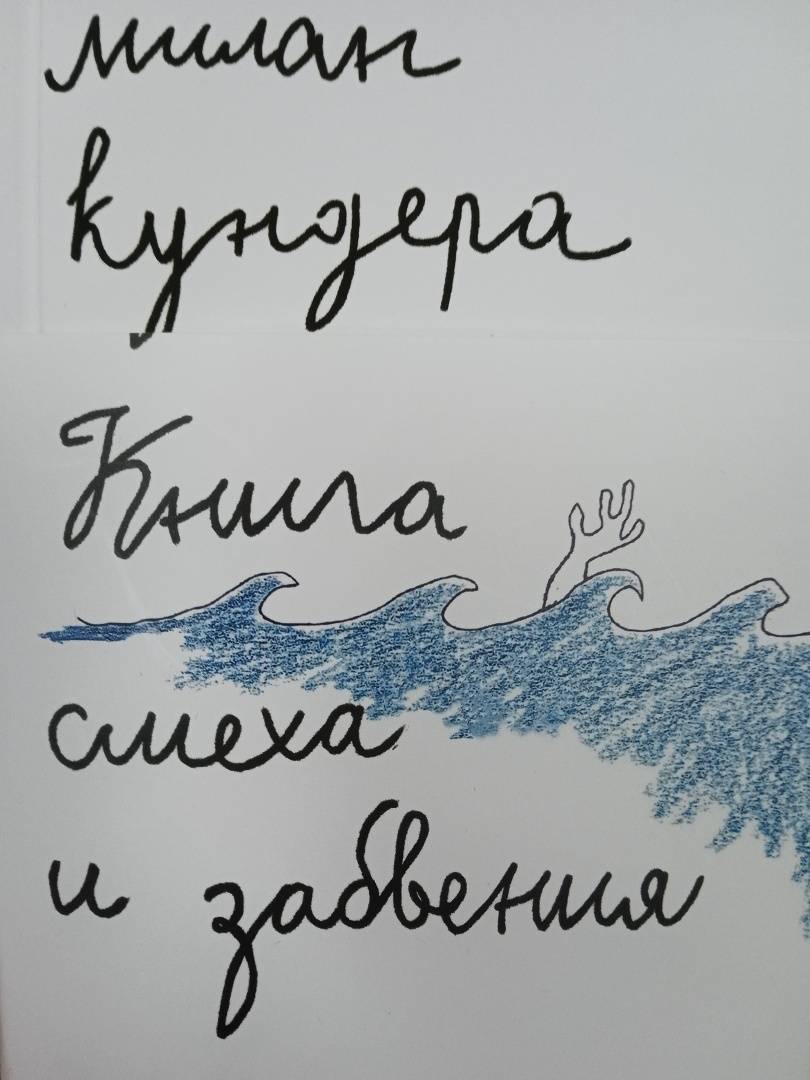 милан
кундера
Книга
смеха
и забвения